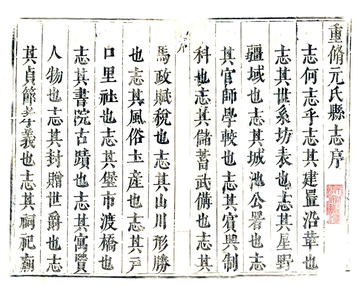 重脩元氏縣志序
志何乎志其建置沿革也
志其世系坊表也志其星野
疆域也志其城池公署也志
其官師學較也志其賓興制
科也志其儲蓄武備也志其
馬政賦稅也志其山川形勝
也志其風俗土產也志其戸
口里社也志其堡市渡橋也
志其書院古蹟也志其寓賢
人物也志其封贈世爵也志
其貞節孝義也志其祠祀廟